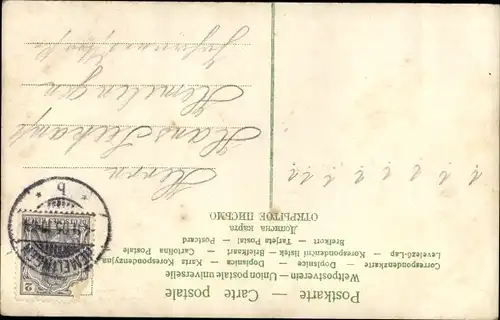 Postkarte — Carte postale
Weltpostverein — Union postale universelle
Correspondenzkarte — Dopisnice — Karta — Korespondenzyjna
Levelező-Lap — Korrespondenční lístek — Briefkaart — Cartolina Postale
Brefkort — Tarjeta Postal — Postcard
Дописна карта
ОТКРЫТОЕ ПИСЬМО
Herrn
Hans
Hemelingen
HEMELINGEN
b
2
i i i i i i i i